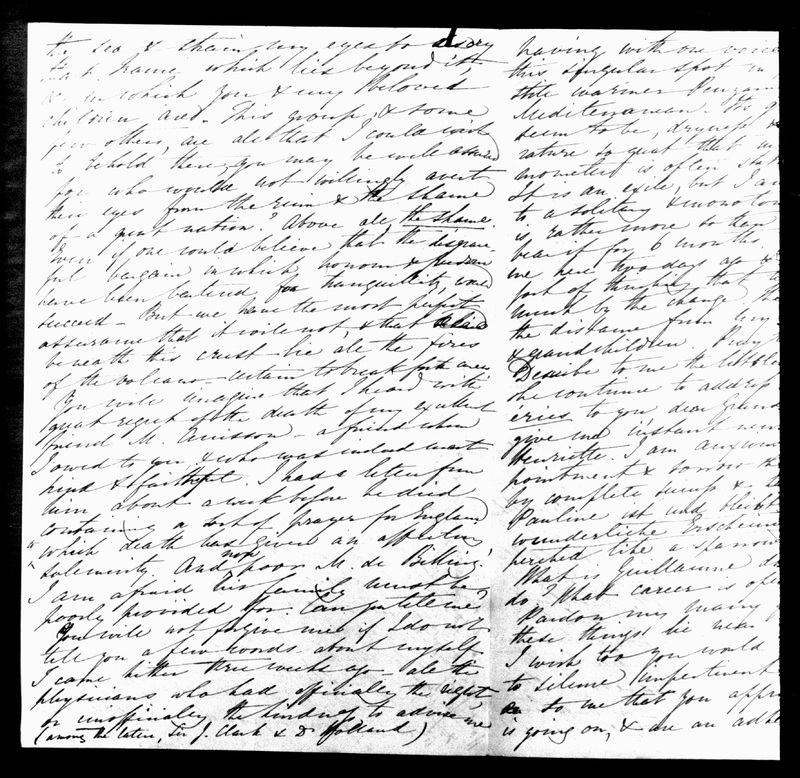 the sea & strain my eyes to descry
that France which lies beyond it,
& in which you & my beloved
children are. This group, & some
few others, are all that I could wish
to behold there you may be well assured
for who would not willingly avert
their eyes from the ruin & the shame
of a great nation? Above all, the shame.
Even if one could believe that the disgrace-
ful bargain in which honour & freedom
have been bartered for tranquillity, would
succeed – But we have the most perfect
assurance that it will not, & that
beneath this crust lie all the fires
of the volcano – certain to break forth anew
You will imagine that I heard with
great regret of the death of my excellent
friend M. Anisson – a friend whom
I owed to you & who was indeed most
kind & faithful. I had a letter from
him about a week before he died
containing a sort of prayer for England
to which death has given an affecting
solemnity. And now poor M. de Billing.
I am afraid his family must be
poorly provided for. Can you tell me?
You will not forgive me if I do not
tell you a few words about myself
I came hither three weeks ago – all the
physicians who had officially the right
or unofficially the kindness to advise me
(among the latter, Sir J. Clark & Dr Holland)
having with one voice
this singular spot in
still warmer
Mediterranean. The
seem to be, dryness &
rature so great that
mometer is often
It is an exile, but I am
to a solitary & monoton
is rather more so than
bear it for 6 months.
me here two days ago &
sort of thing that
much by the change
the distance from my
& grandchildren. Pray
Describe to me the little
she continue to address
eries to you dear Grand
give me instant news
Henriette. I am anxious
pointment & sorrow
by complete success &
Pauline ist und bleibt
wunderliche Erschein
perched like a sparrow
What is Guillaume
do? What career is open
Pardon my many
these things lie near
I wish too you would
to silence impertinent
to me that you appr
is going on, & are an adhe